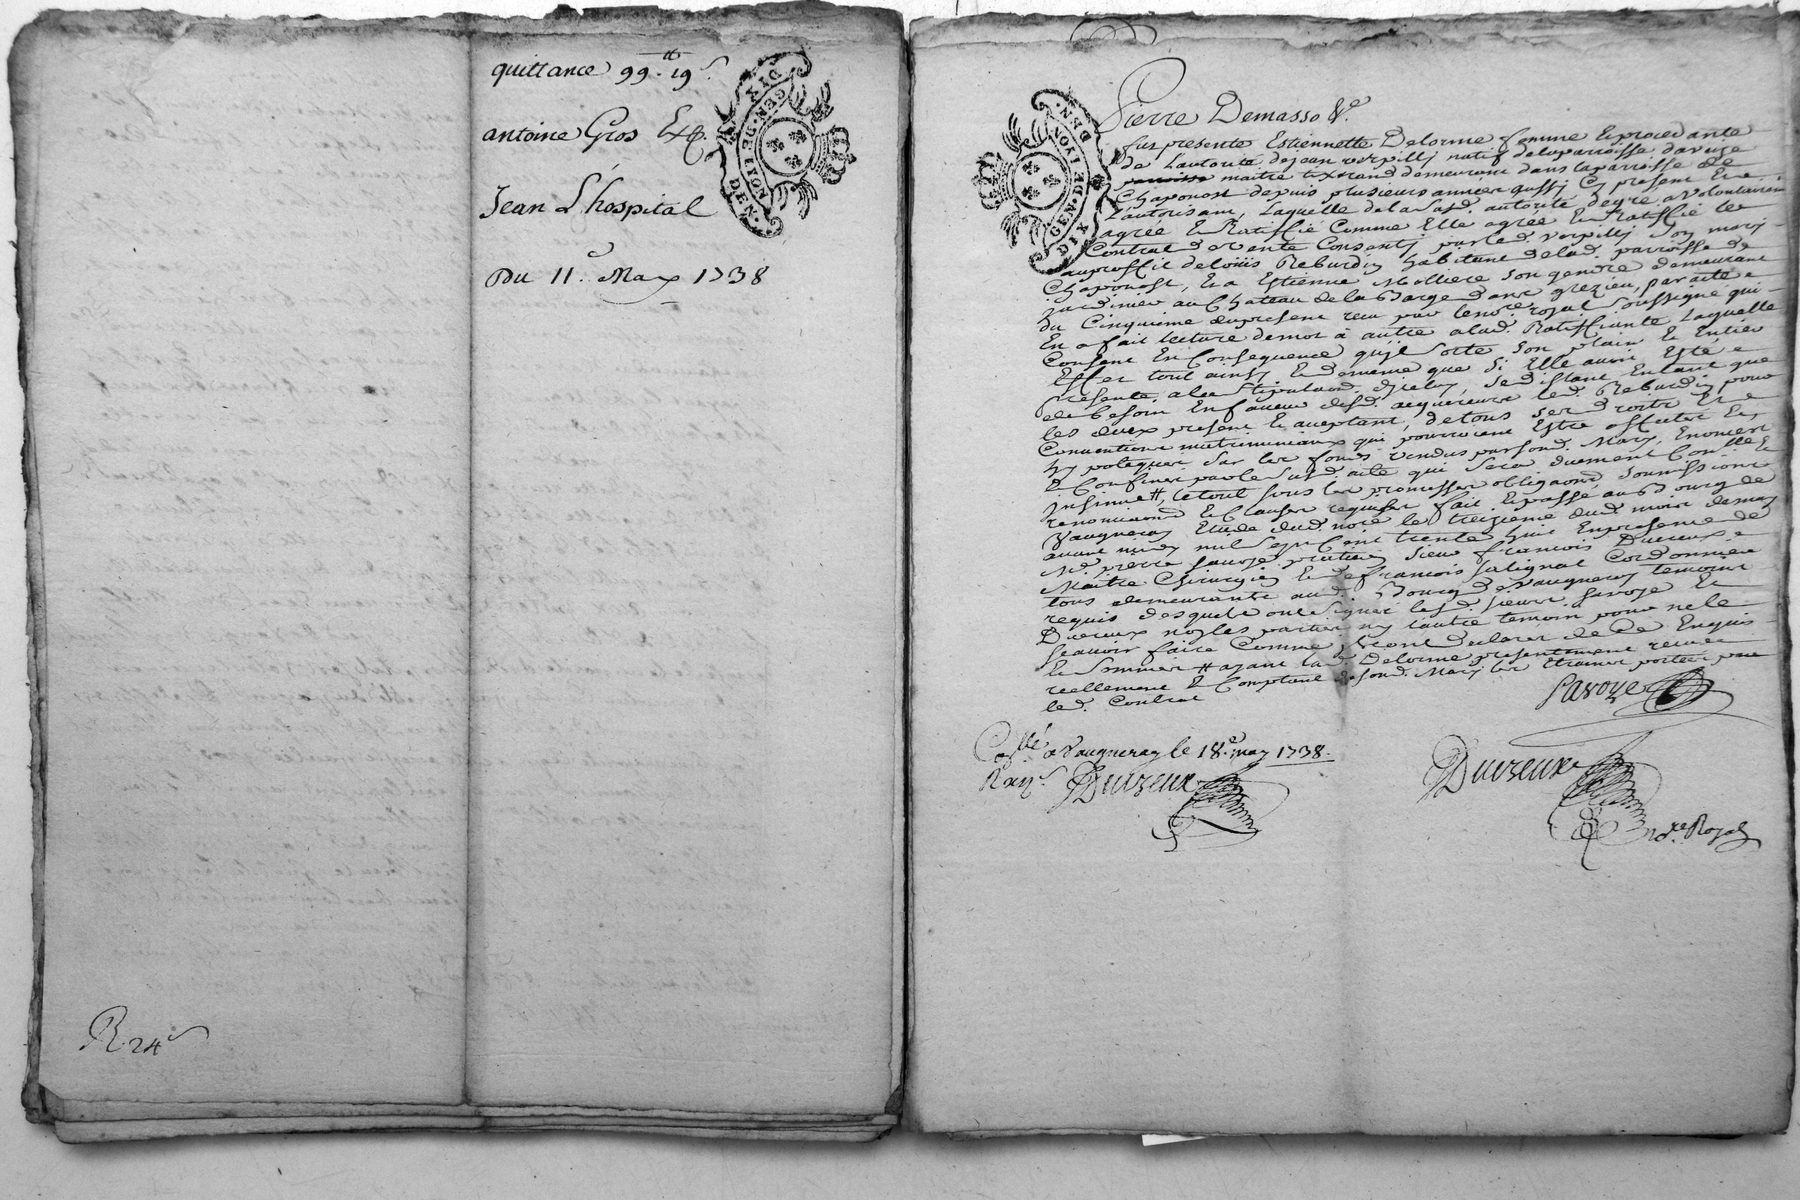 quittance 99.tt 19s
antoine Gros Exp.
Jean L'hospital
Du 11e May 1738
DEN. GEN. DE LYON DIX
R. 24s
DEN. GEN. DE LYON DIX
Pierre Demasso &e
fut presente Estiennette Delorme femme & procedante
de l'autorité de jean verpilly natif de la parroisse daveize
parroisse maitre tixerand demeurant dans la parroisse de
Chaponost depuis plusieurs années aussy cy present &
l'autorisant, Laquelle de la susd. autorité de gré a Volontairem
agréé & Ratiffié Comme Elle agrée & Ratiffie le
Contrat de vente Consenty par led. verpilly son mary
au proffit de loüis Reburdin habitant de lad. parroisse de
Chaponost, & a Estienne Molliere son gendre demeurant
jardinier au Chateau de la Barge dans grezieu, par acte
du Cinquieme du present reçu par le no.re royal soussigné qui
En a fait lecture de mot à autre a lad. Ratiffiante Laquelle
Consent En Consequence qu'jl sorte son plain & Entier
Effet tout ainsy & de meme que si Elle avoit Esté
presente a la stipulaon. d'jceluy, se distant Entant que
de besoin En faveur desd. acquereurs led. Reburdin pour
les deux present & aceptant, de tous ses droits &
Conventions matrimoniaux qui pourroient Estre affectés &
hypotequés sur les fonds vendus par sond. Mary, Enoncés
& Confinés par le susd. acte qui sera duement Con.llé &
jnsinué #, le tout sous les promesses obligaons. soumissions
renonciaons & Clauses requises fait & passé au Bourg de
Vaugneray Etude dud. no.re le treizieme dud. mois de may
avant midy mil sept Cent trente huit En presence de
Me. pierre savoye praticien sieur françois Dureux
Maitre Chirurgien & de françois salignat Cordonnier
tous demeurants aud. Bourg de Vaugneray temoins
requis desquels ont signé lesd. sieurs savoye &
Dureux no les parties ny l'autre temoin pour ne le
sçavoir faire Comme jls ont declaré de ce Enquis
& sommés # ayant lad. Delorme presentement receu
reellement & Comptant de sond. Mary les Etrainés portées par
led. Contrat
Savoye
Con.llé a Vaugneray le 18.e may 1738.
Dureux
Dureux
no.re Royal